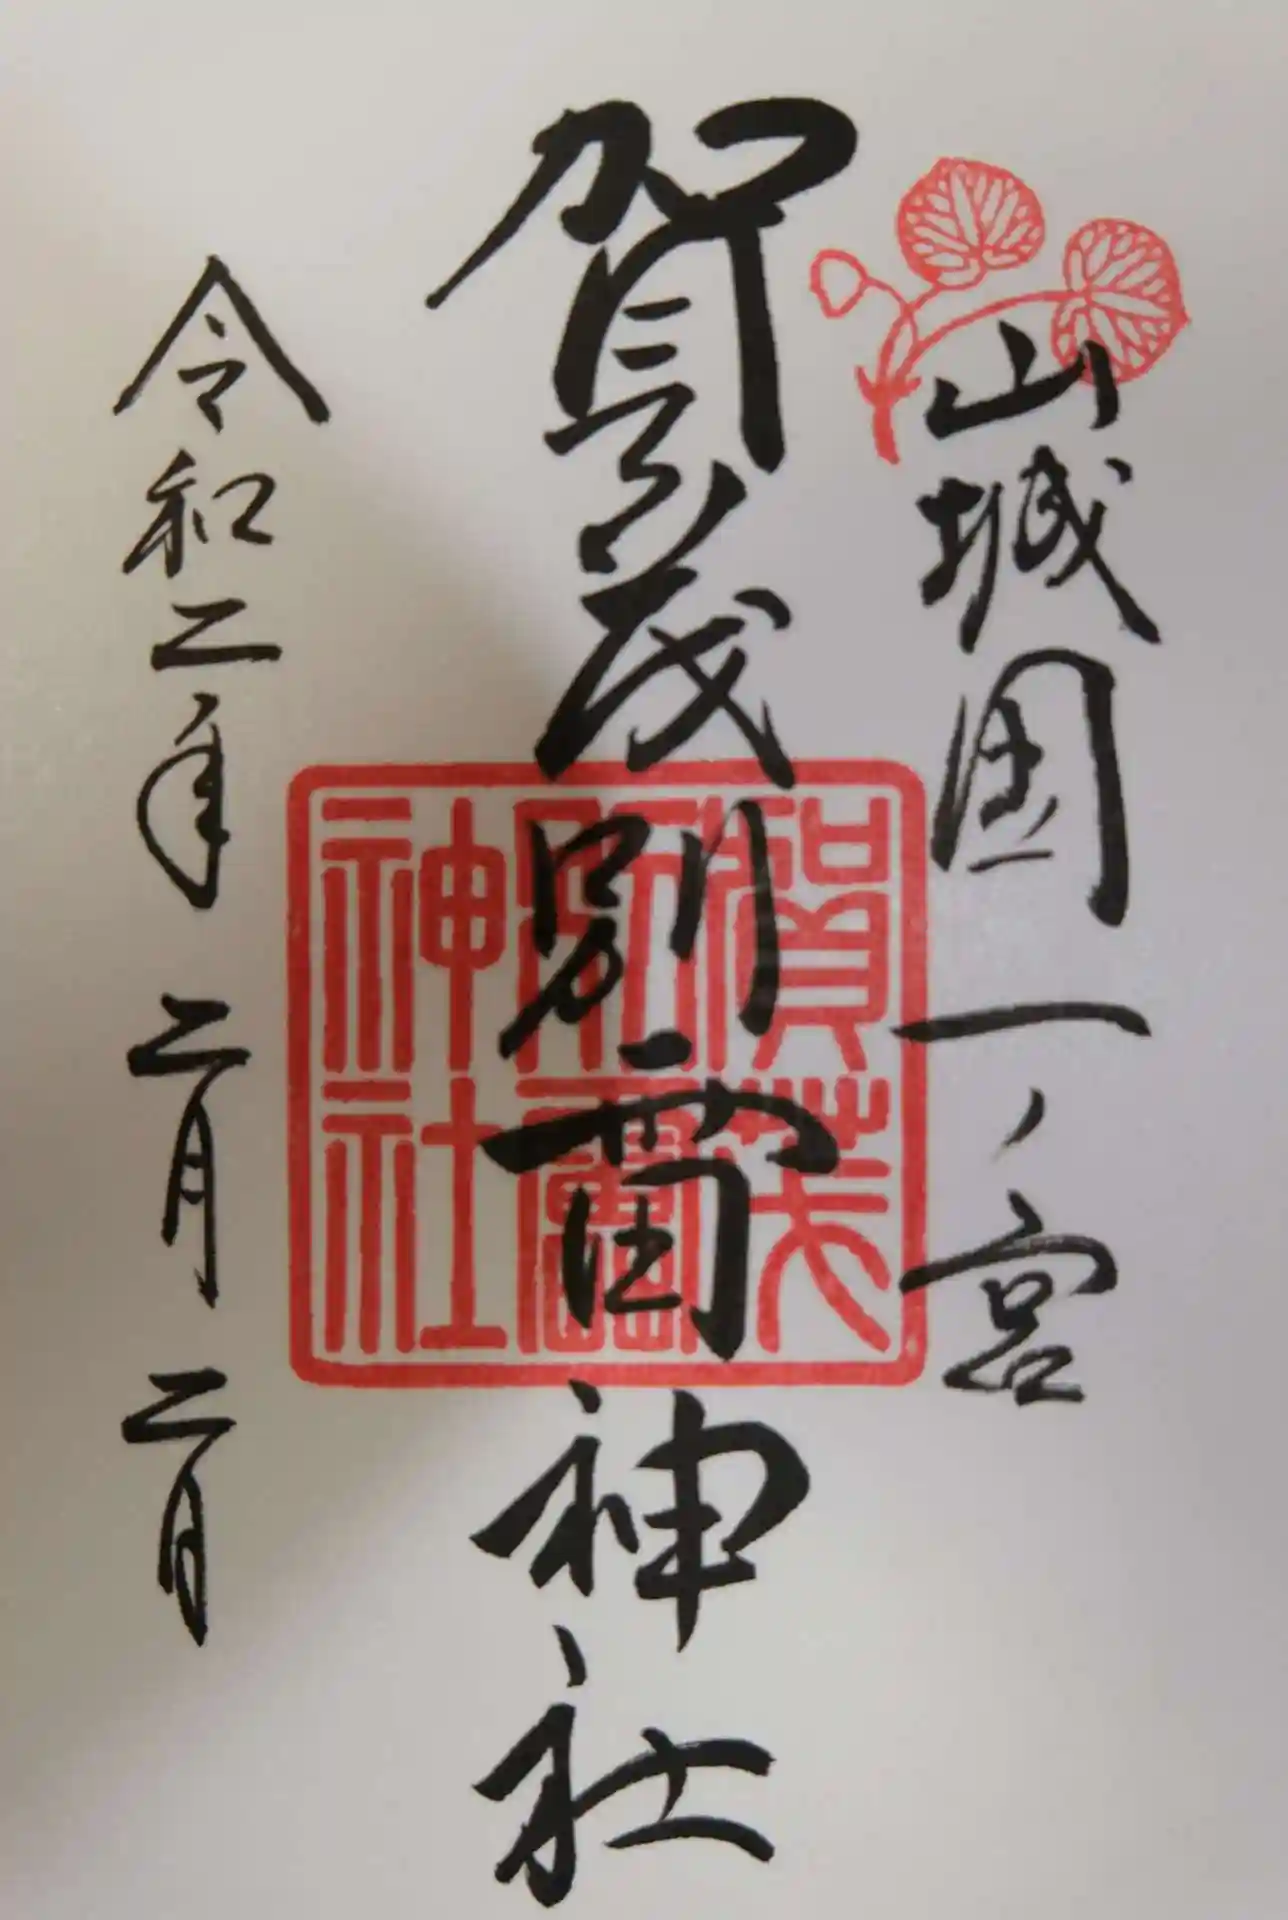 山城国一ノ宮
賀茂別雷神社
賀茂
別雷
神社
令和二年 二月 二日